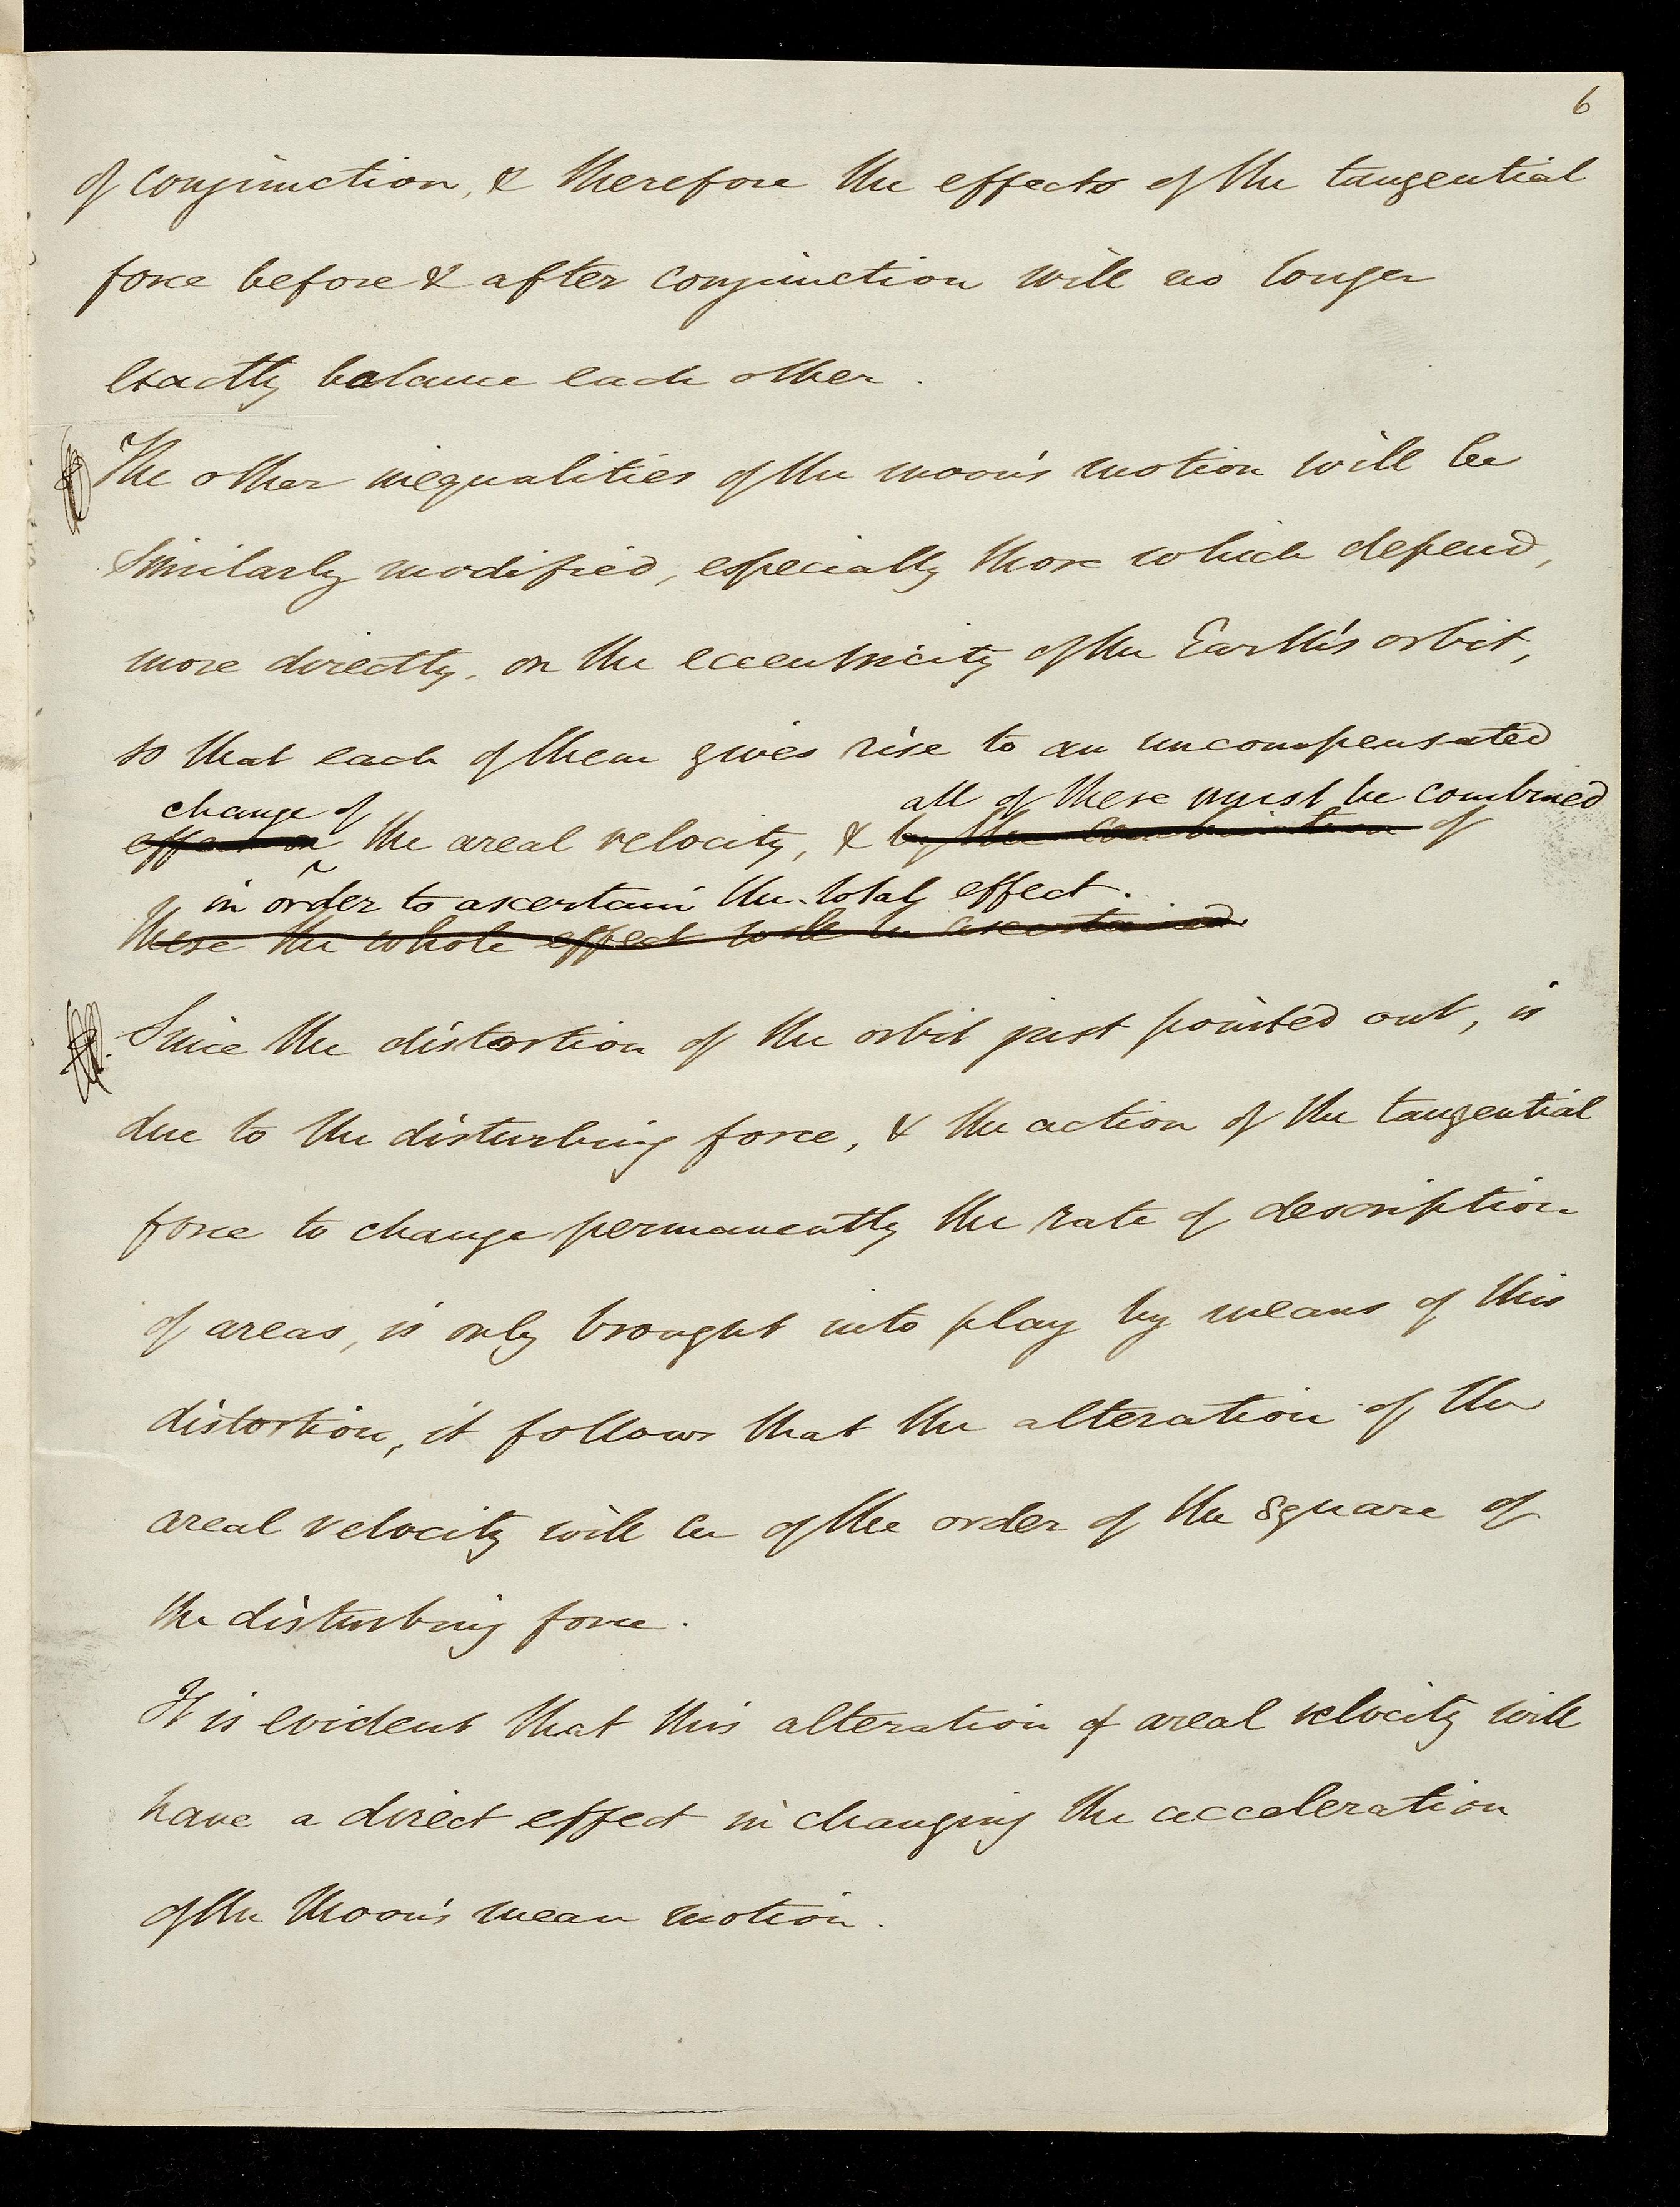 6
of conjunction, & therefore the effects of the tangential
force before & after conjunction will no longer
exactly balance each other.
The other inequalities of the moon's motion will be
similarly modified, especially those which depend,
more directly, on the eccentricity of the Earth's orbit,
so that each of them gives rise to an uncompensated
change of all of these must be combined
effect on the areal velocity, & by the combination of
in order to ascertain the total effect.
these the whole effect will be ascertained.
Since the distortion of the orbit just pointed out, is
due to the disturbing force, & the action of the tangential
force to change permanently the rate of description
of areas, is only brought into play by means of this
distortion, it follows that the alteration of the
areal velocity will be of the order of the square of
the disturbing force.
It is evident that this alteration of areal velocity will
have a direct effect in changing the acceleration
of the Moon's mean motion.